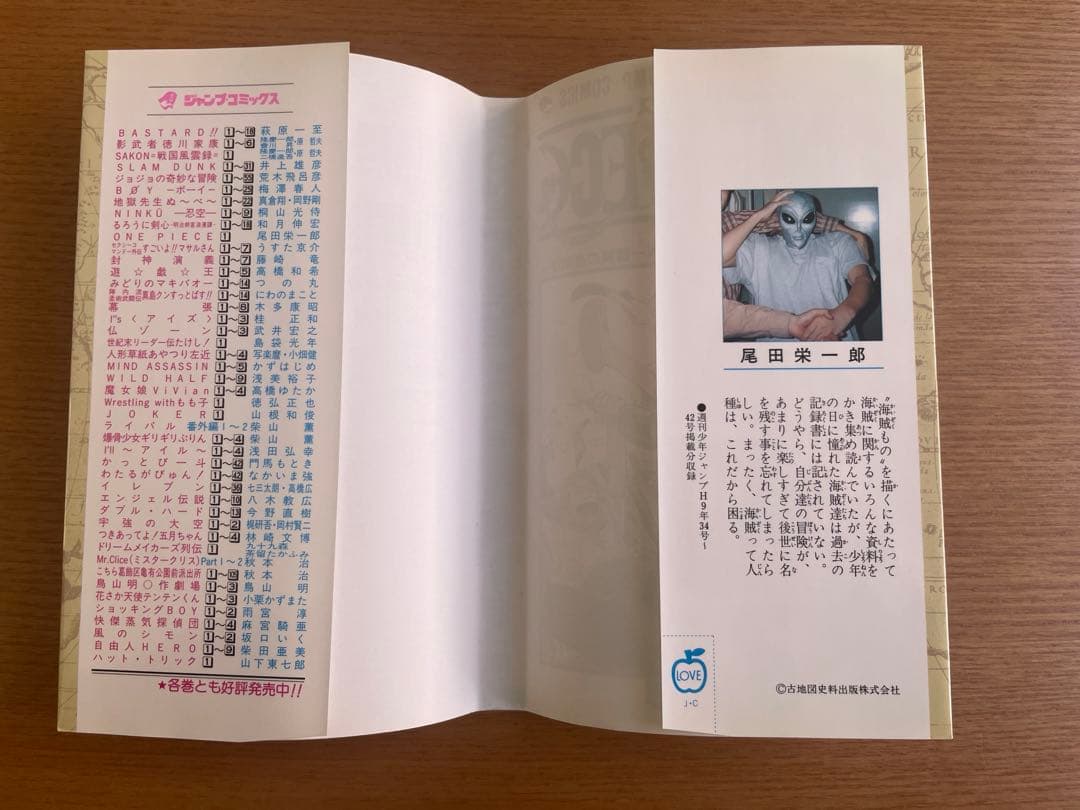 ジャンプ・コミックス
BASTARD!! 1〜18 萩原一至
影武者徳川家康 1〜6 隆慶一郎・原哲夫 會川昇
SAKON=戦国風雲録= 1 隆慶一郎・原哲夫 二橋進吾
SLAM DUNK 1〜31 井上雄彦
ジョジョの奇妙な冒険 1〜55 荒木飛呂彦
BØY ―ボーイ― 1〜25 梅澤春人
地獄先生ぬ〜べ〜 1〜22 真倉翔・岡野剛
NINKŪ ―忍空― 1〜9 桐山光侍
るろうに剣心 ―明治剣客浪漫譚― 1〜18 和月伸宏
ONE PIECE 1 尾田栄一郎
セクシーコマンドー外伝 すごいよ!!マサルさん 1〜7 うすた京介
封神演義 1〜7 藤崎竜
遊☆戯☆王 1〜5 高橋和希
みどりのマキバオー 1〜14 つの丸
陣内流柔術武闘伝 真島クンすっとばす!! 1〜14 にわのまこと
幕張 1〜6 木多康昭
I"s〈アイズ〉 1〜3 桂正和
仏ゾーン 1〜3 武井宏之
世紀末リーダー伝たけし! 1 島袋光年
人形草紙あやつり左近 1〜4 写楽麿・小畑健
MIND ASSASSIN 1〜5 かずはじめ
WILD HALF 1〜9 浅美裕子
魔女娘ViVian 1〜4 高橋ゆたか
Wrestling withもも子 1 徳弘正也
JOKER 1 山根和俊
ライバル 番外編1〜2 柴山薫
爆骨少女ギリギリぷりん 1〜4 柴山薫
I'll 〜アイル〜 1〜4 浅田弘幸
かっとび一斗 1〜42 門馬もとき
わたるがぴゅん! 1〜42 なかいま強
イレブン 七三太朗・高橋広
エンジェル伝説 1〜10 八木教広
ダブル・ハード 1〜13 今野直樹
宇強の大空 1〜2 梶研吾・岡村賢二
つきあってよ!五月ちゃん 1〜4 林崎文博
ドリームメイカーズ列伝 1 九十九森 茶留たかふみ
Mr.Clice(ミスタークリス) Part1〜2 秋本治
こちら葛飾区亀有公園前派出所 秋本治
鳥山明○作劇場 1〜3 鳥山明
花さか天使テンテンくん 1〜3 小栗かずまた
ショッキングBOY 1〜2 雨宮淳
快傑蒸気探偵団 1〜4 麻宮騎亜
風のシモン 1〜2 坂口いく
自由人HERO 1〜9 柴田亜美
ハット・トリック 1 山下東七郎
★各巻とも好評発売中!!
尾田栄一郎
“海賊もの”を描くにあたって
海賊に関するいろんな資料を
かき集め読んでいたが、少年
の日に憧れた海賊達は過去の
記録書には記されていない。
どうやら、自分達の冒険が、
あまりに楽しすぎて後世に名
を残す事を忘れてしまったら
しい。まったく、海賊って人
種は、これだから困る。
●週刊少年ジャンプH9年34号〜
42号掲載分収録
LOVE
J・C
©古地図史料出版株式会社